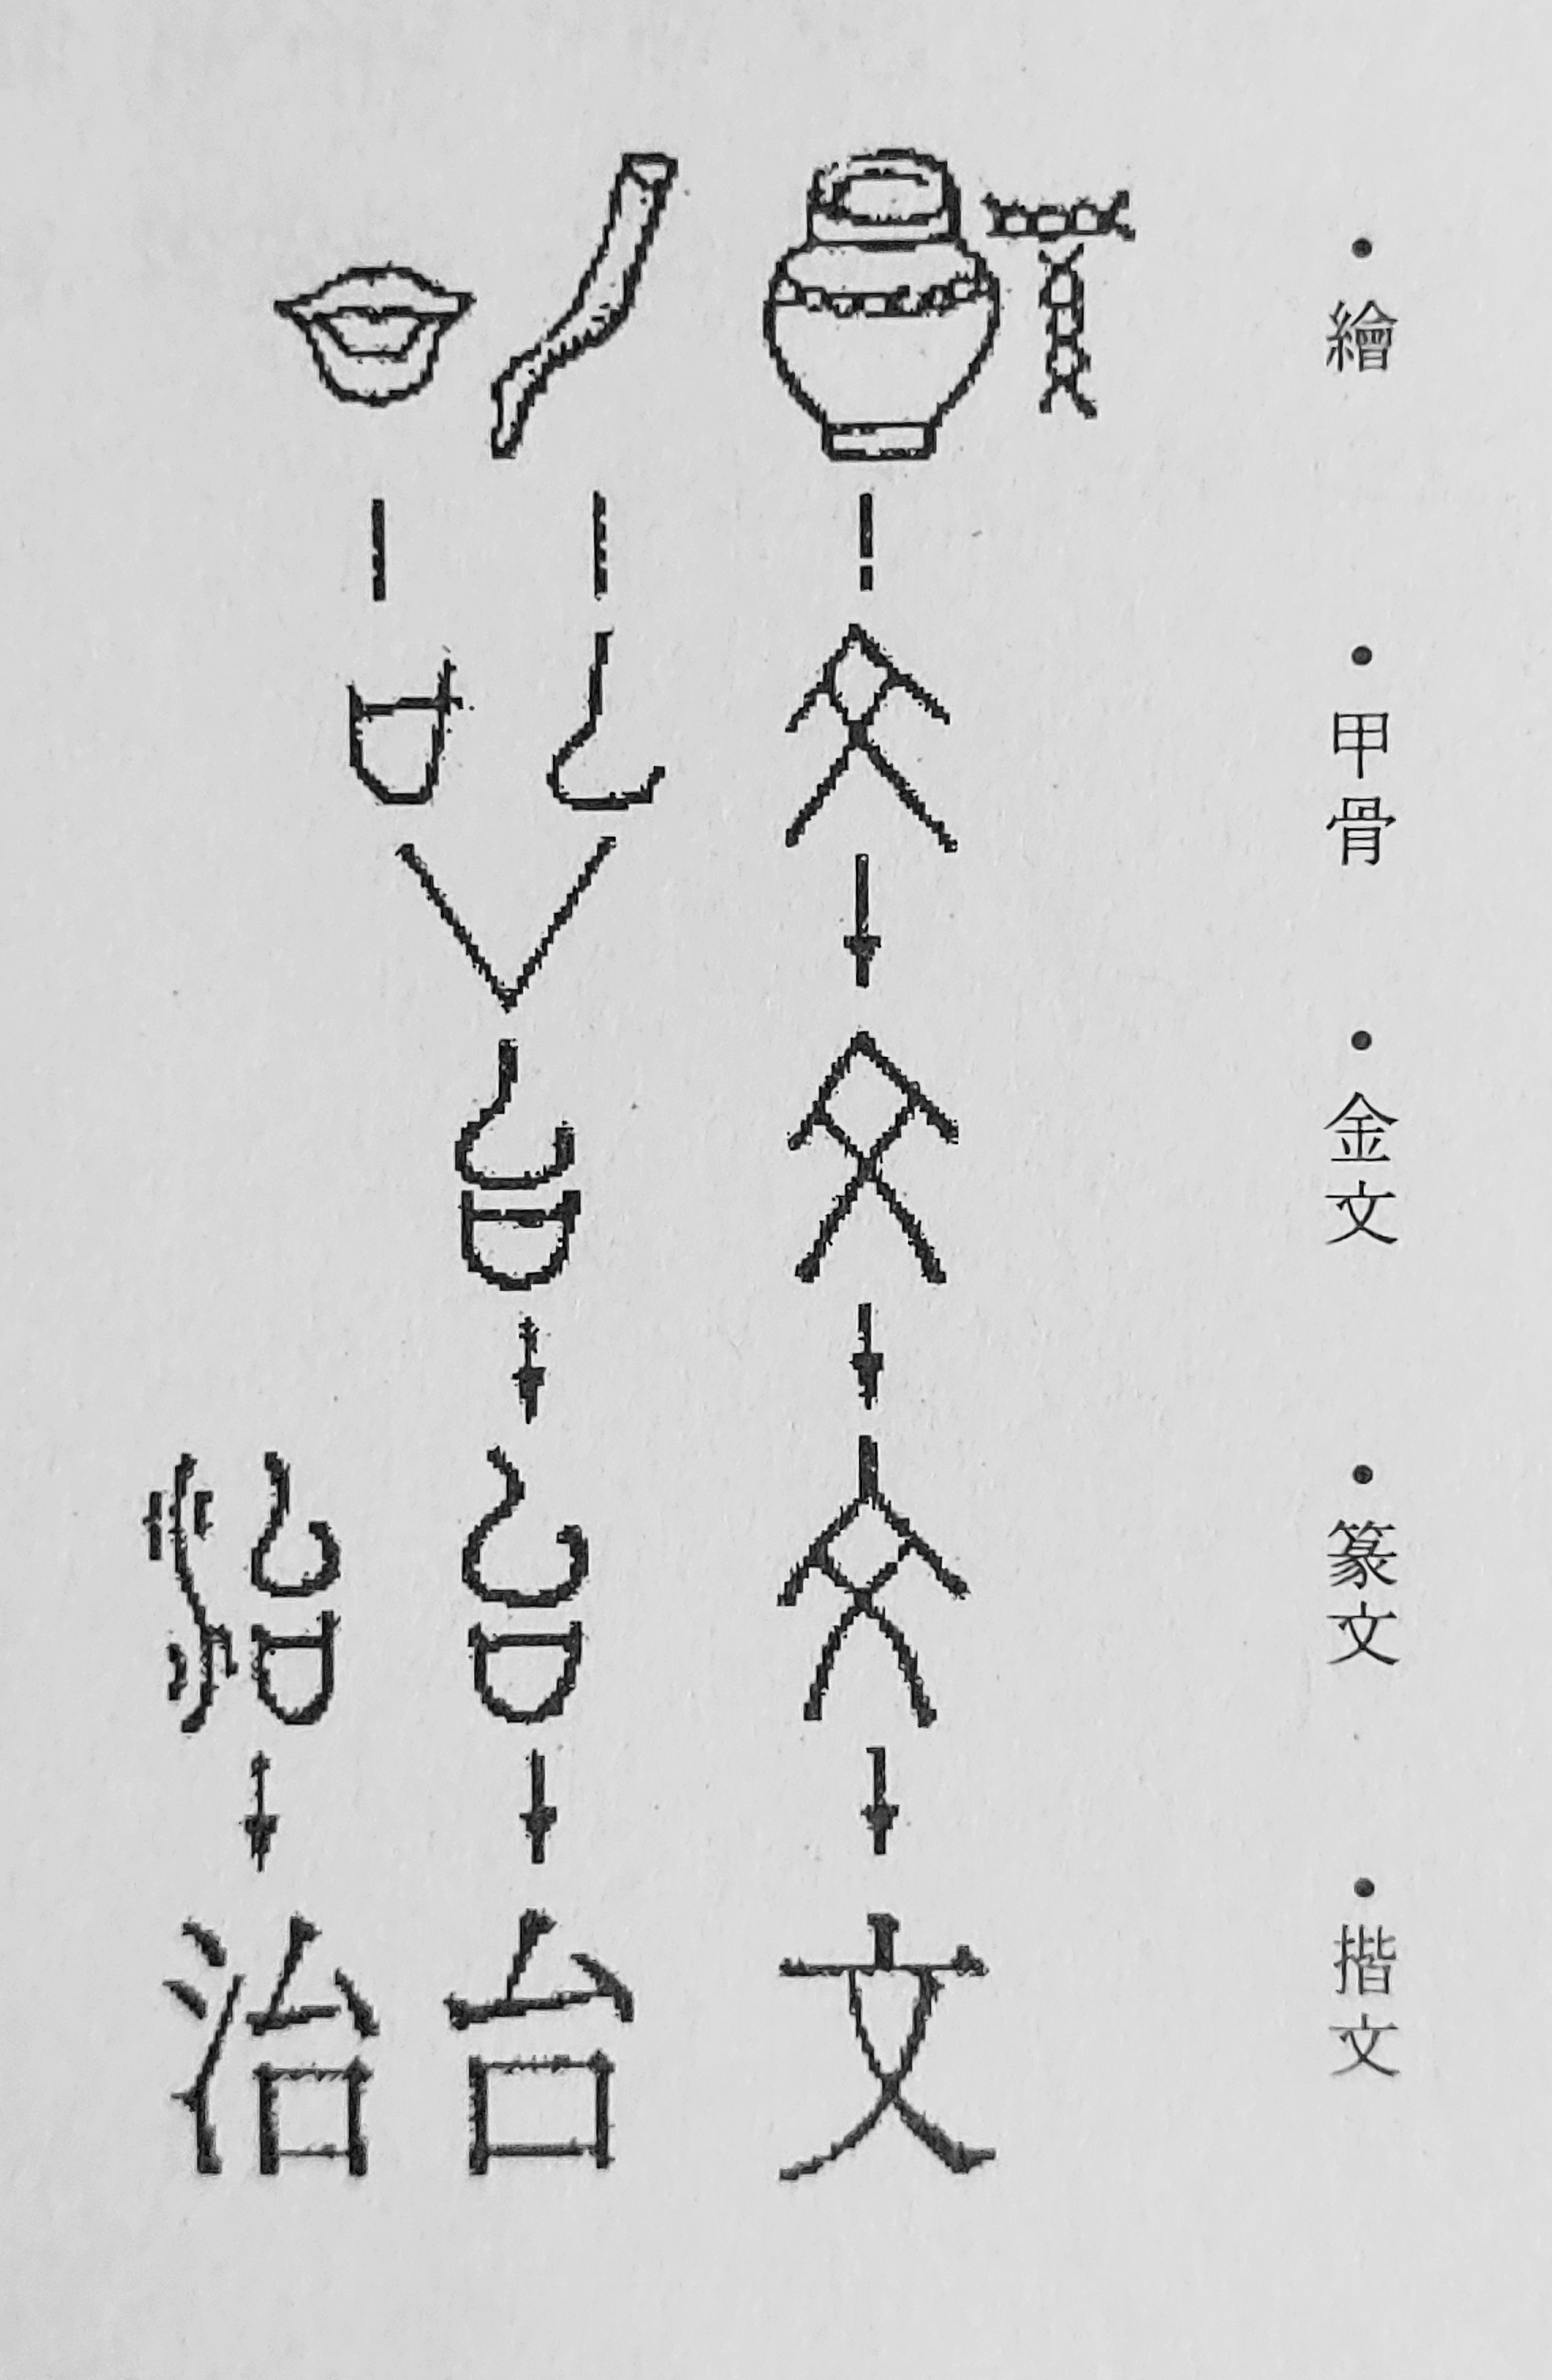 ・繪
・甲骨
・金文
・篆文
・揩文
文
台
治